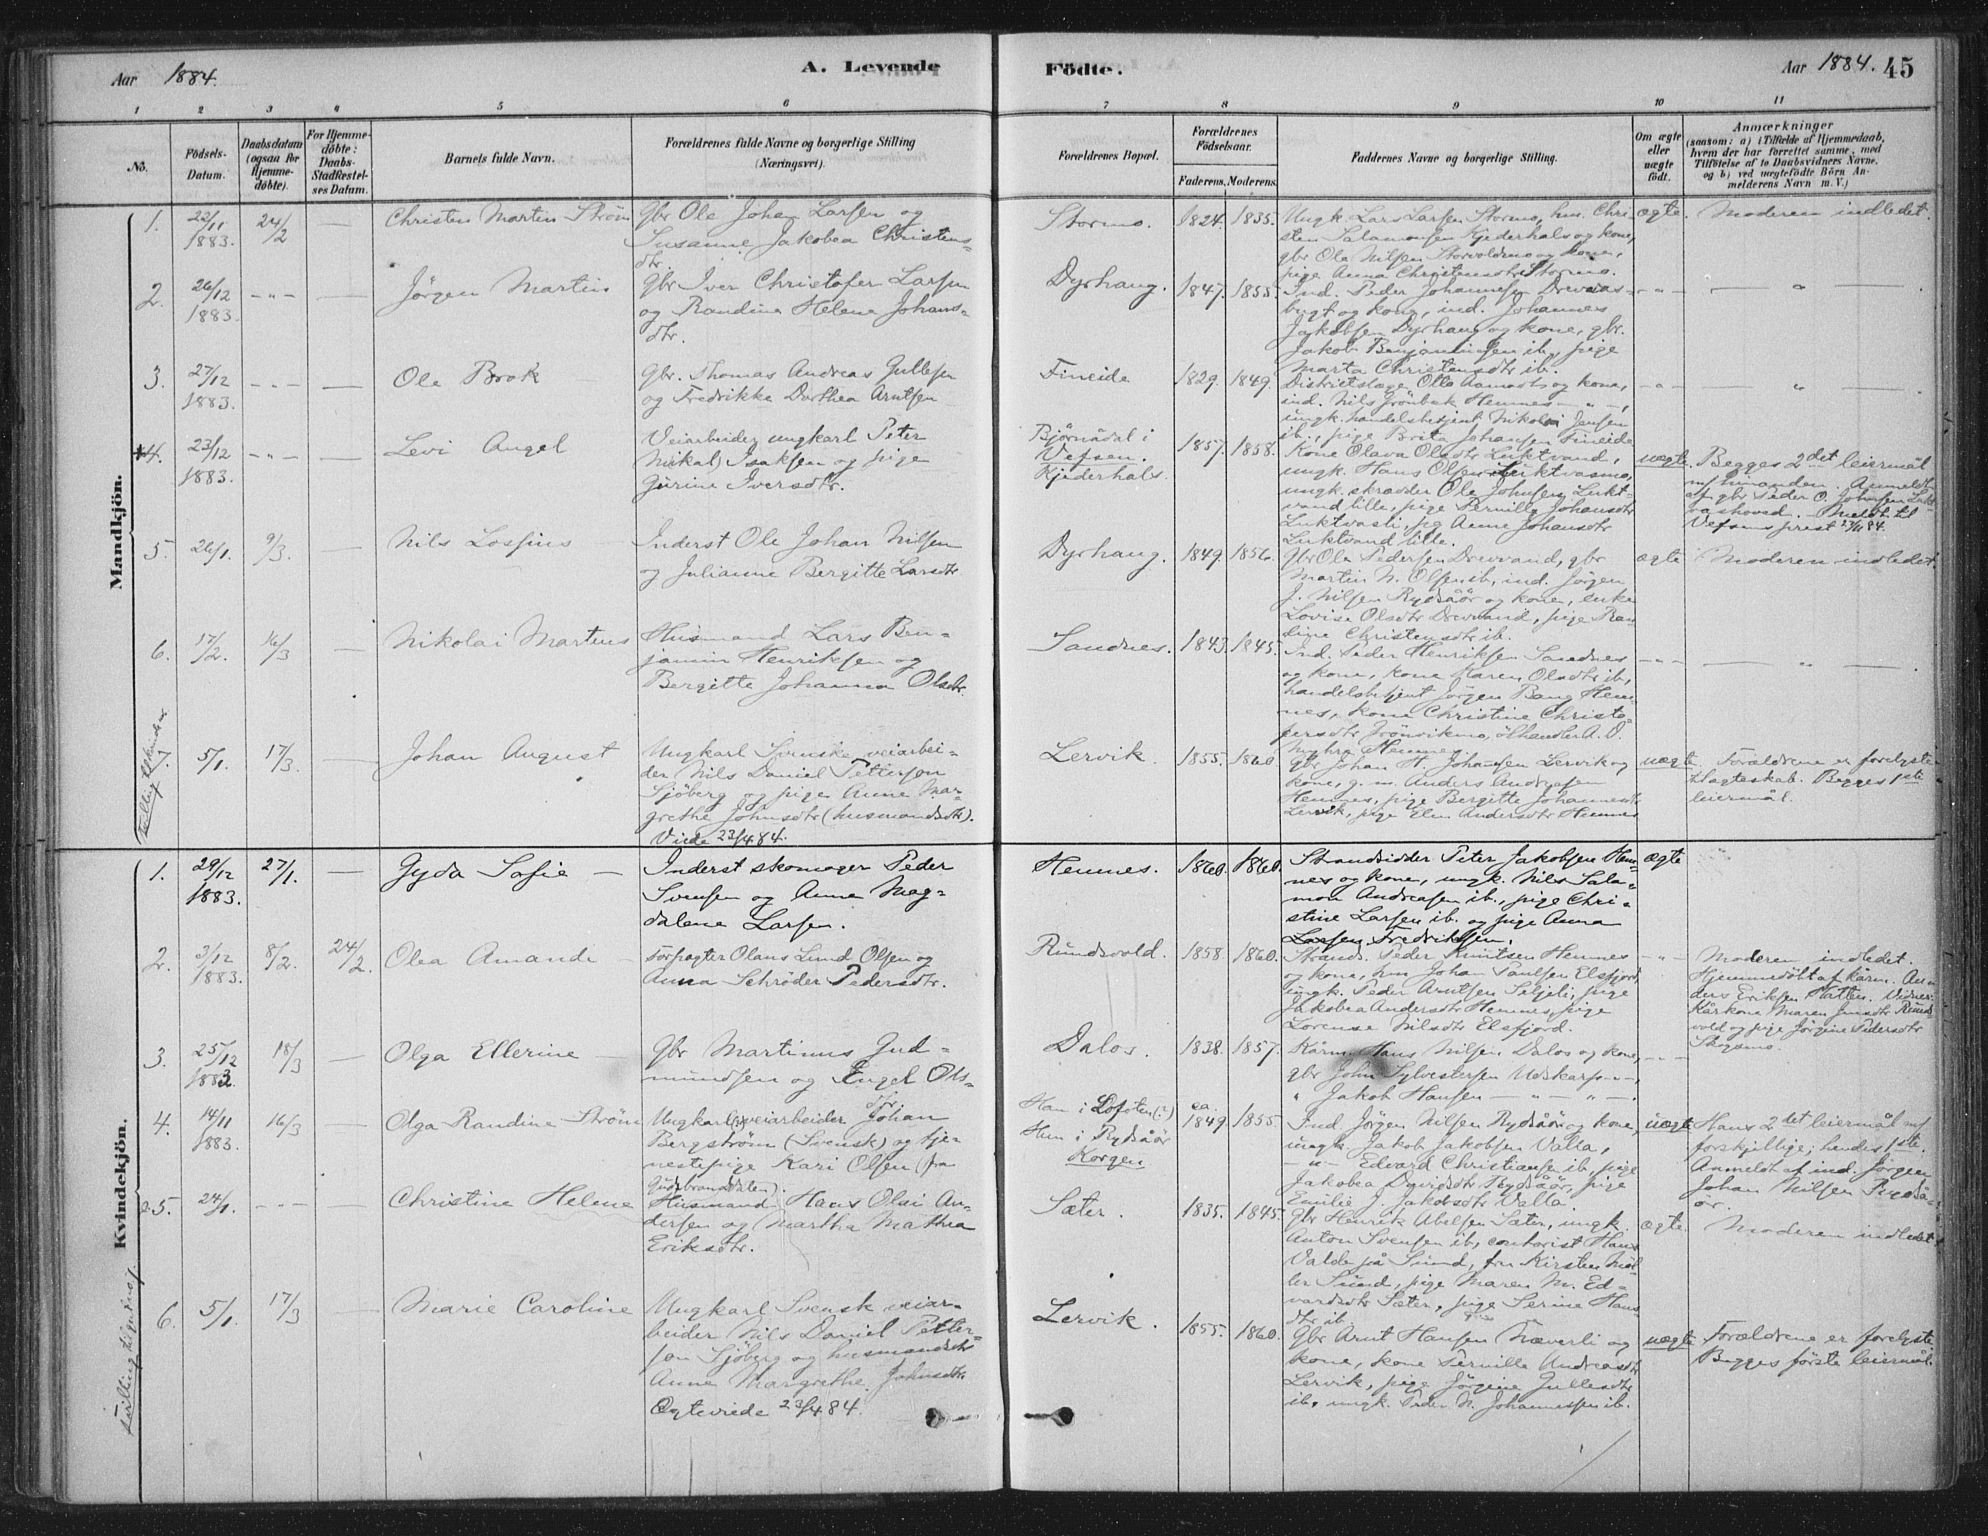 Aar 1884.
A. Levende
Födte.
Aar 1884. 45
1 2 3 4 5 6 7 8 9 10 11
No.
Födsels-
Datum.
Daabsdatum
(ogsaa for
Hjemme-
döbte).
For Hjemme-
döbte:
Daabs-
Stadfæstel-
ses Datum.
Barnets fulde Navn.
Forældrenes fulde Navne og borgerlige Stilling
(Næringsvei).
Forældrenes Bopæl.
Forældrenes
Födselsaar.
Faderens. Moderens.
Faddernes Navne og borgerlige Stilling.
Om ægte
eller
uægte
födt.
Anmærkninger
(saasom: a) i Tilfælde af Hjemmedaab,
hvem der har forrettet samme, med
Tilföielse af to Daabsvidners Navne,
og b) ved uægtefödte Börn An-
melderens Navn m. V.)
Mandkjön.
1. 22/11 1883. 24/2 — Christen Martin Strøm
Gbr Ole Johan Larsen og
Susanne Jakobea Christens-
dtr.
Stormo. 1824. 1835.
Ungk. Lars Larsen Stormo, hm. Chri-
sten Salamonsen Kjederhals og kone,
gbr Ole Nilsen Storvoldmo og kone,
pige Anna Christensdtr Stormo.
ægte. Moderen indledet.
2. 26/12 1883. -"- — Jørgen Martin
Gbr Iver Christofer Larsen
og Randine Helene Johans-
dtr.
Dyrhaug. 1847. 1855.
Ind. Peder Johannesen Drevvas-
bugt og kone, ind. Johannes
Jakobsen Dyrhaug og kone, gbr.
Jakob Benjaminsen ib., pige
Marta Christensdtr ib.
-"- — " —
3. 27/12 1883. -"- — Ole Brok
Gbr. Thomas Andreas Jullesen
og Fredrikke Dorthea Arntsen
Fineide 1829. 1849.
Districtslæge Otto Aanodt og kone,
ind. Nils Grønbek Hemnes -"-,
ungk. handelsbetjent Nikolai Jensen
ib., pige Brita Johansen Fineide
-"- — " —
4. 23/12 1883. -"- — Levi Angel
Veiarbeider ungkarl Peter
Mikal Isaksen og pige
Gurine Iversdtr.
Bjørnådal i
Vefsen.
Kjederhals.
1857. 1858.
Kone Olava Olsdtr Luktvand,
ungk. Hans Olsen Luktvasmo,
ungk. skrædder Ole Johnsen Lukt-
vand lille, pige Pernille Johansdtr
Luktvasli, pg Anne Johansdtr
Luktvand lille.
uægte. Begges 2det leiermål
m/ hinanden. Anmeldt
af gbr Peder O. Johnsen Lukt-
vashoved. – Meldt til
Vefsens prest 27/11 84.
5. 26/1. 9/3. — Nils Losius
Inderst Ole Johan Nilsen
og Julianne Bergitte Larsdtr
Dyrhaug. 1849. 1856.
Gbr Ole Pedersen Drevvand, gbr
Martin N. Olsen ib, ind. Jørgen
J. Nilsen Rydsåør og kone, enke
Lovise Olsdtr Drevvand, pige Ran-
dine Christensdtr ib.
ægte Moderen indledet.
6. 17/2. 16/3 — Nikolai Martens
Husmand Lars Ben-
jamin Henriksen og
Bergitte Johanna Olsdtr.
Sandnes. 1843. 1845.
Ind. Peder Henriksen Sandnes
og kone, kone Maren Olsdtr ib,
handelsbetjent Jørgen Bang Hem-
nes, kone Christine Christo-
persdtr Grønvikmo, ølhandler A. O.
Myhra Hemnes.
-"- — " —
7. 5/1. 17/3. — Johan August
Ungkarl Svenske veiarbei-
der Nils Daniel Petterson
Sjøberg og pige Anne Mar-
grethe Johnsdtr (husmandsdtr).
Viede 23/4 84.
Lervik. 1855. 1860
Gbr Johan H. Johansen Lervik og
kone, g. m. Anders Andreasen
Hemnes, pige Bergitte Johannesdtr
Lervik, pige Elen Andersdtr Hemnes
uægte. Forældrene er forelyste
t. ægteskab. Begges 1ste
leiermål.
Kvindekjön.
1. 29/12 1883. 27/1. — Gyda Sofie —
Inderst skomager Peder
Svensen og Anne Mag-
dalene Larsen.
Hemnes. 1860. 1860.
Strandsidder Peter Jakobsen Hem-
nes og kone, ungk. Nils Sala-
mon Andreasen ib., pige Chri-
stine Larsen ib. og pige Anna
Larsen Fredriksen.
ægte
2. 3/12 1883. 8/2. 24/2. Olea Amanda —
Forpagter Olaus Lund Olsen og
Anna Schrøder Pedersdtr.
Rundsvold. 1858. 1860.
Strands. Peder Knutsen Hemnes
og kone, hm Johan Paulsen Elsfjord,
ungk. Peder Arntsen Seljeli, pige
Jakobea Andersdtr Hemnes, pige
Lorense Nilsdtr Elsfjord.
-"- Moderen indledet.
Hjemmedøbt af kårm. An-
ders Eriksen Hatten. Vidner:
Kårkone Maren Jensdtr Runds-
vold og pige Jørgine Pedersdtr
Skogsmo.
3. 25/12 1883. 18/3 — Olga Ellerine
Gbr Martinus Gud-
mundsen og Engel Ols-
dtr
Dalos. 1838. 1857.
Kårm. Hans Nilsen Dalos og kone,
gbr John Sylvestersen Udskarpen -"-,
" Jakob Hansen -"-
-"-
4. 14/11 1883. 16/3 — Olga Randine Strøm
Ungkarl veiarbeider Johan
Bergstrøm (Svensk) og tje-
nestepige Kari Olsen (fra
Gudbrandsdalen).
Han i Lofoten (?)
Hun i Rydsåør
Korgen
ca. 1849. 1855.
Ind Jørgen Nilsen Rydsåør og kone,
ungk. Jakob Jakobsen Valla,
-"- Edvard Christiansen ib, pige
Jakobea Davidsdtr Rydsåør, pige
Emilie J. Jakobsdtr Valla.
uægte Hans 2det leiermål m/
forskjellige, hendes 1ste.
Anmeldt af ind. Jørgen
Johan Nilsen Rydså-
ør.
5. 24/1. Christine Helene
Husmand Hans Olai An-
dersen og Martha Mathea
Eriksdtr.
Sæter. 1835. 1845.
Gbr Henrik Abelsen Sæter, ungk.
Anton Svensen ib, contorist Hans
Valde på Sund, fru Kirsten Møl-
ler Sund, pige Maren M. Ed-
vardsdtr Sæter, pige Serine Hans
dtr ib.
ægte. Moderen indledet
6. 5/1. 17/3 — Marie Caroline
Ungkarl Svensk veiar-
beider Nils Daniel Petter-
son Sjøberg og husmandsdtr
Anne Margrethe Johnsdtr
Ægteviede 23/4 84.
Lervik. 1855. 1860.
Gbr Arnt Hansen Næverli og
kone, kone Pernille Andreasdtr
Lervik, pige Jørgine Jullesdtr
ib, ungk. Peder N. Johannesen ib.
uægte Forældrene er forelyste
Begges første leiermål.